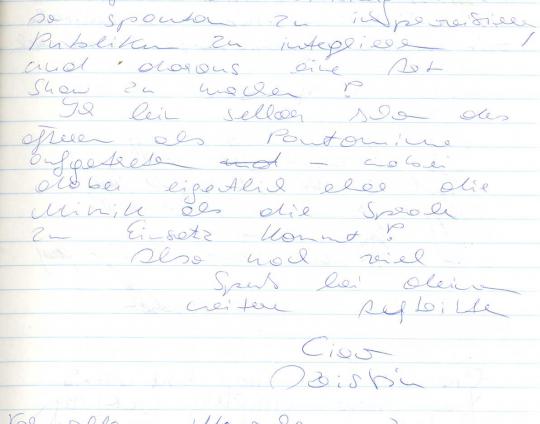 so spontan zu improvisieren,
Publikum zu integrieren
und daraus eine Art
Show zu machen ?
Ich bin selber schon des
öfteren als Pantomime
aufgetreten und – wobei
dabei eigentlich eher die
Mimik als die Sprache
zu Einsatz kommt ?
Also noch viel
Spaß bei deinen
weiteren Auftritten
Ciao